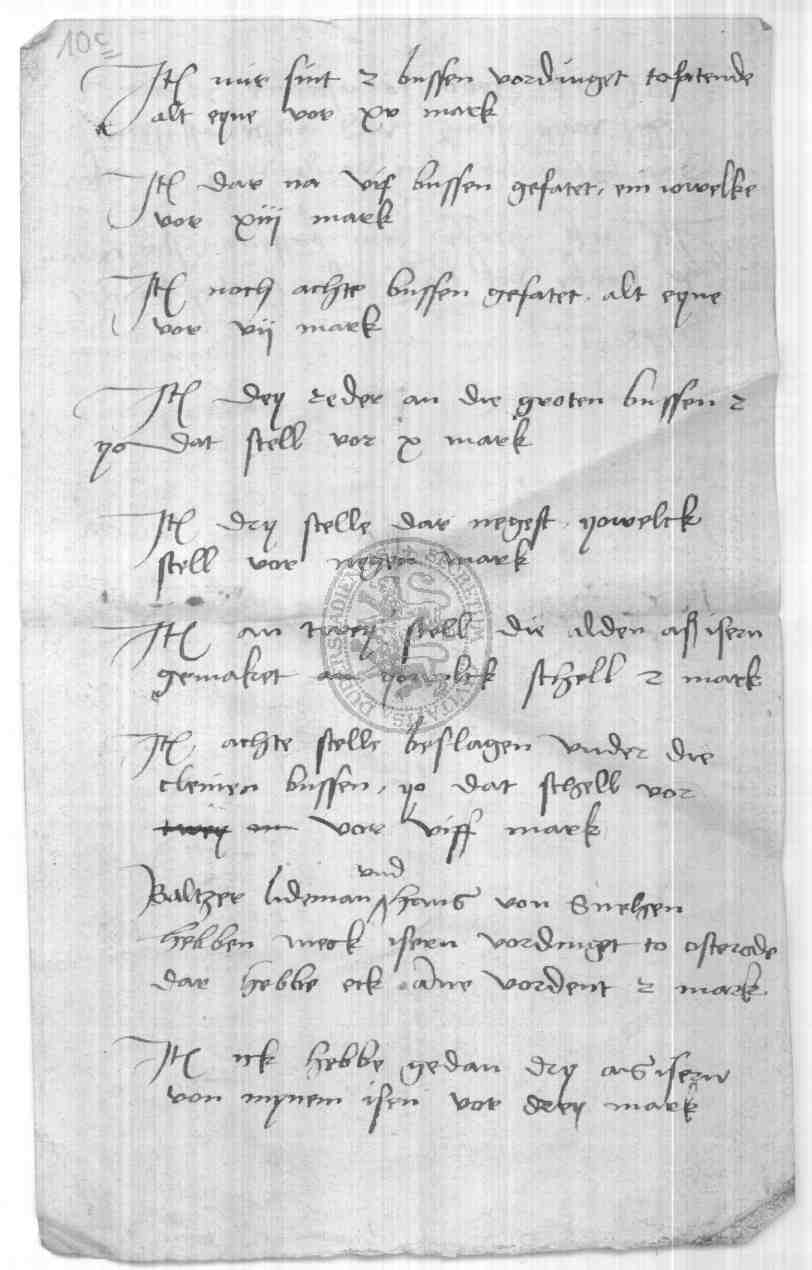 105
Itē mir sint 2 bussen vordinget tofatende
alt eyne vor xv mark
Itē dar na vif bussen gefatet, ein iowelke
vor xiij mark
Itē noch achte bussen gefatet alt eyne
vor vij mark
Itē dey reder an die groten bussen 2
yo dat stell vor x mark
Itē dry stelle dar negest yowelck
stell vor negen mark
Itē an twey stell die alden aß isern
gemaket yowelck schell 2 mark
Itē achte stelle beslagen vnder die
cleinen bussen, yo dat schell vor
twey m vor viff mark
vnd
Baltzer lideman hans von Snehen
hebben meck isern vordinget to osterode
dar hebbe eck ane vordent 2 mark
Itē ick hebbe gedan dry as isern
von mynem isen vor drey mark